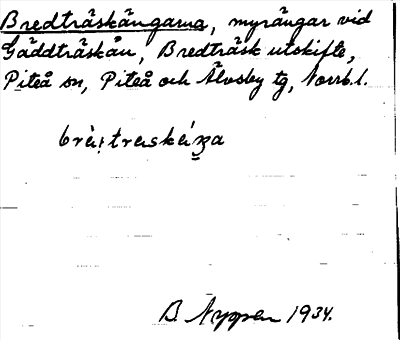 Bredträskängarna, myrängar vid
Gäddträskån, Bredträsk utskifte,
Piteå sn, Piteå och Älvsby tg, Norrb.l.
B. Nygren 1934.